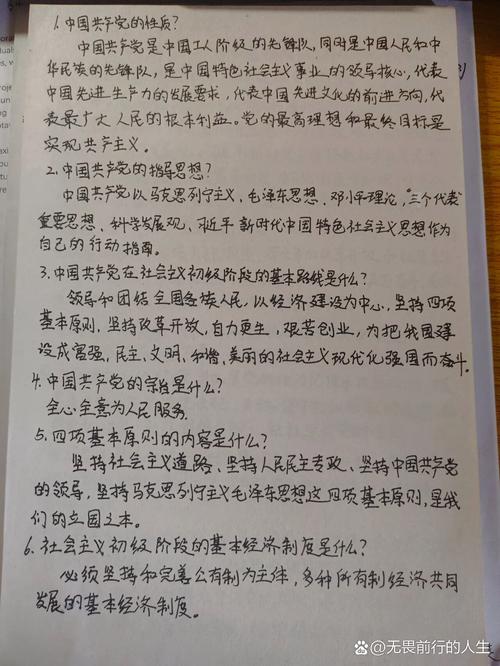 1.中国共产党的性质?
中国共产党是中国工人阶级的先锋队,同时是中国人民和中
华民族的先锋队,是中国特色社会主义事业的领导核心,代表
中国先进生产力的发展要求,代表中国先进文化的前进方向,代
表最广大人民的根本利益。党的最高理想和最终目标是
实现共产主义。
2.中国共产党的指导思想?
中国共产党以马克思列宁主义、毛泽东思想、邓小平理论,“三个代表”
重要思想、科学发展观、习近平新时代中国特色社会主义思想作为
自己的行动指南。
3.中国共产党在社会主义初级阶段的基本路线是什么?
领导和团结全国各族人民,以经济建设为中心,坚持四项
基本原则,坚持改革开放,自力更生,艰苦创业,为把我国建
设成富强,民主,文明,和谐,美丽的社会主义现代化强国而奋斗。
4.中国共产党的宗旨是什么?
全心全意为人民服务
5.四项基本原则的内容是什么?
坚持社会主义道路、坚持人民民主专政、坚持中国共产党
的领导,坚持马克思列宁主义毛泽东思想这四项基本原则,是我
们的立国之本。
6.社会主义初级阶段的基本经济制度是什么?
必须坚持和完善公有制为主体,多种所有制经济共同
发展的基本经济制度。
@无畏前行的人生